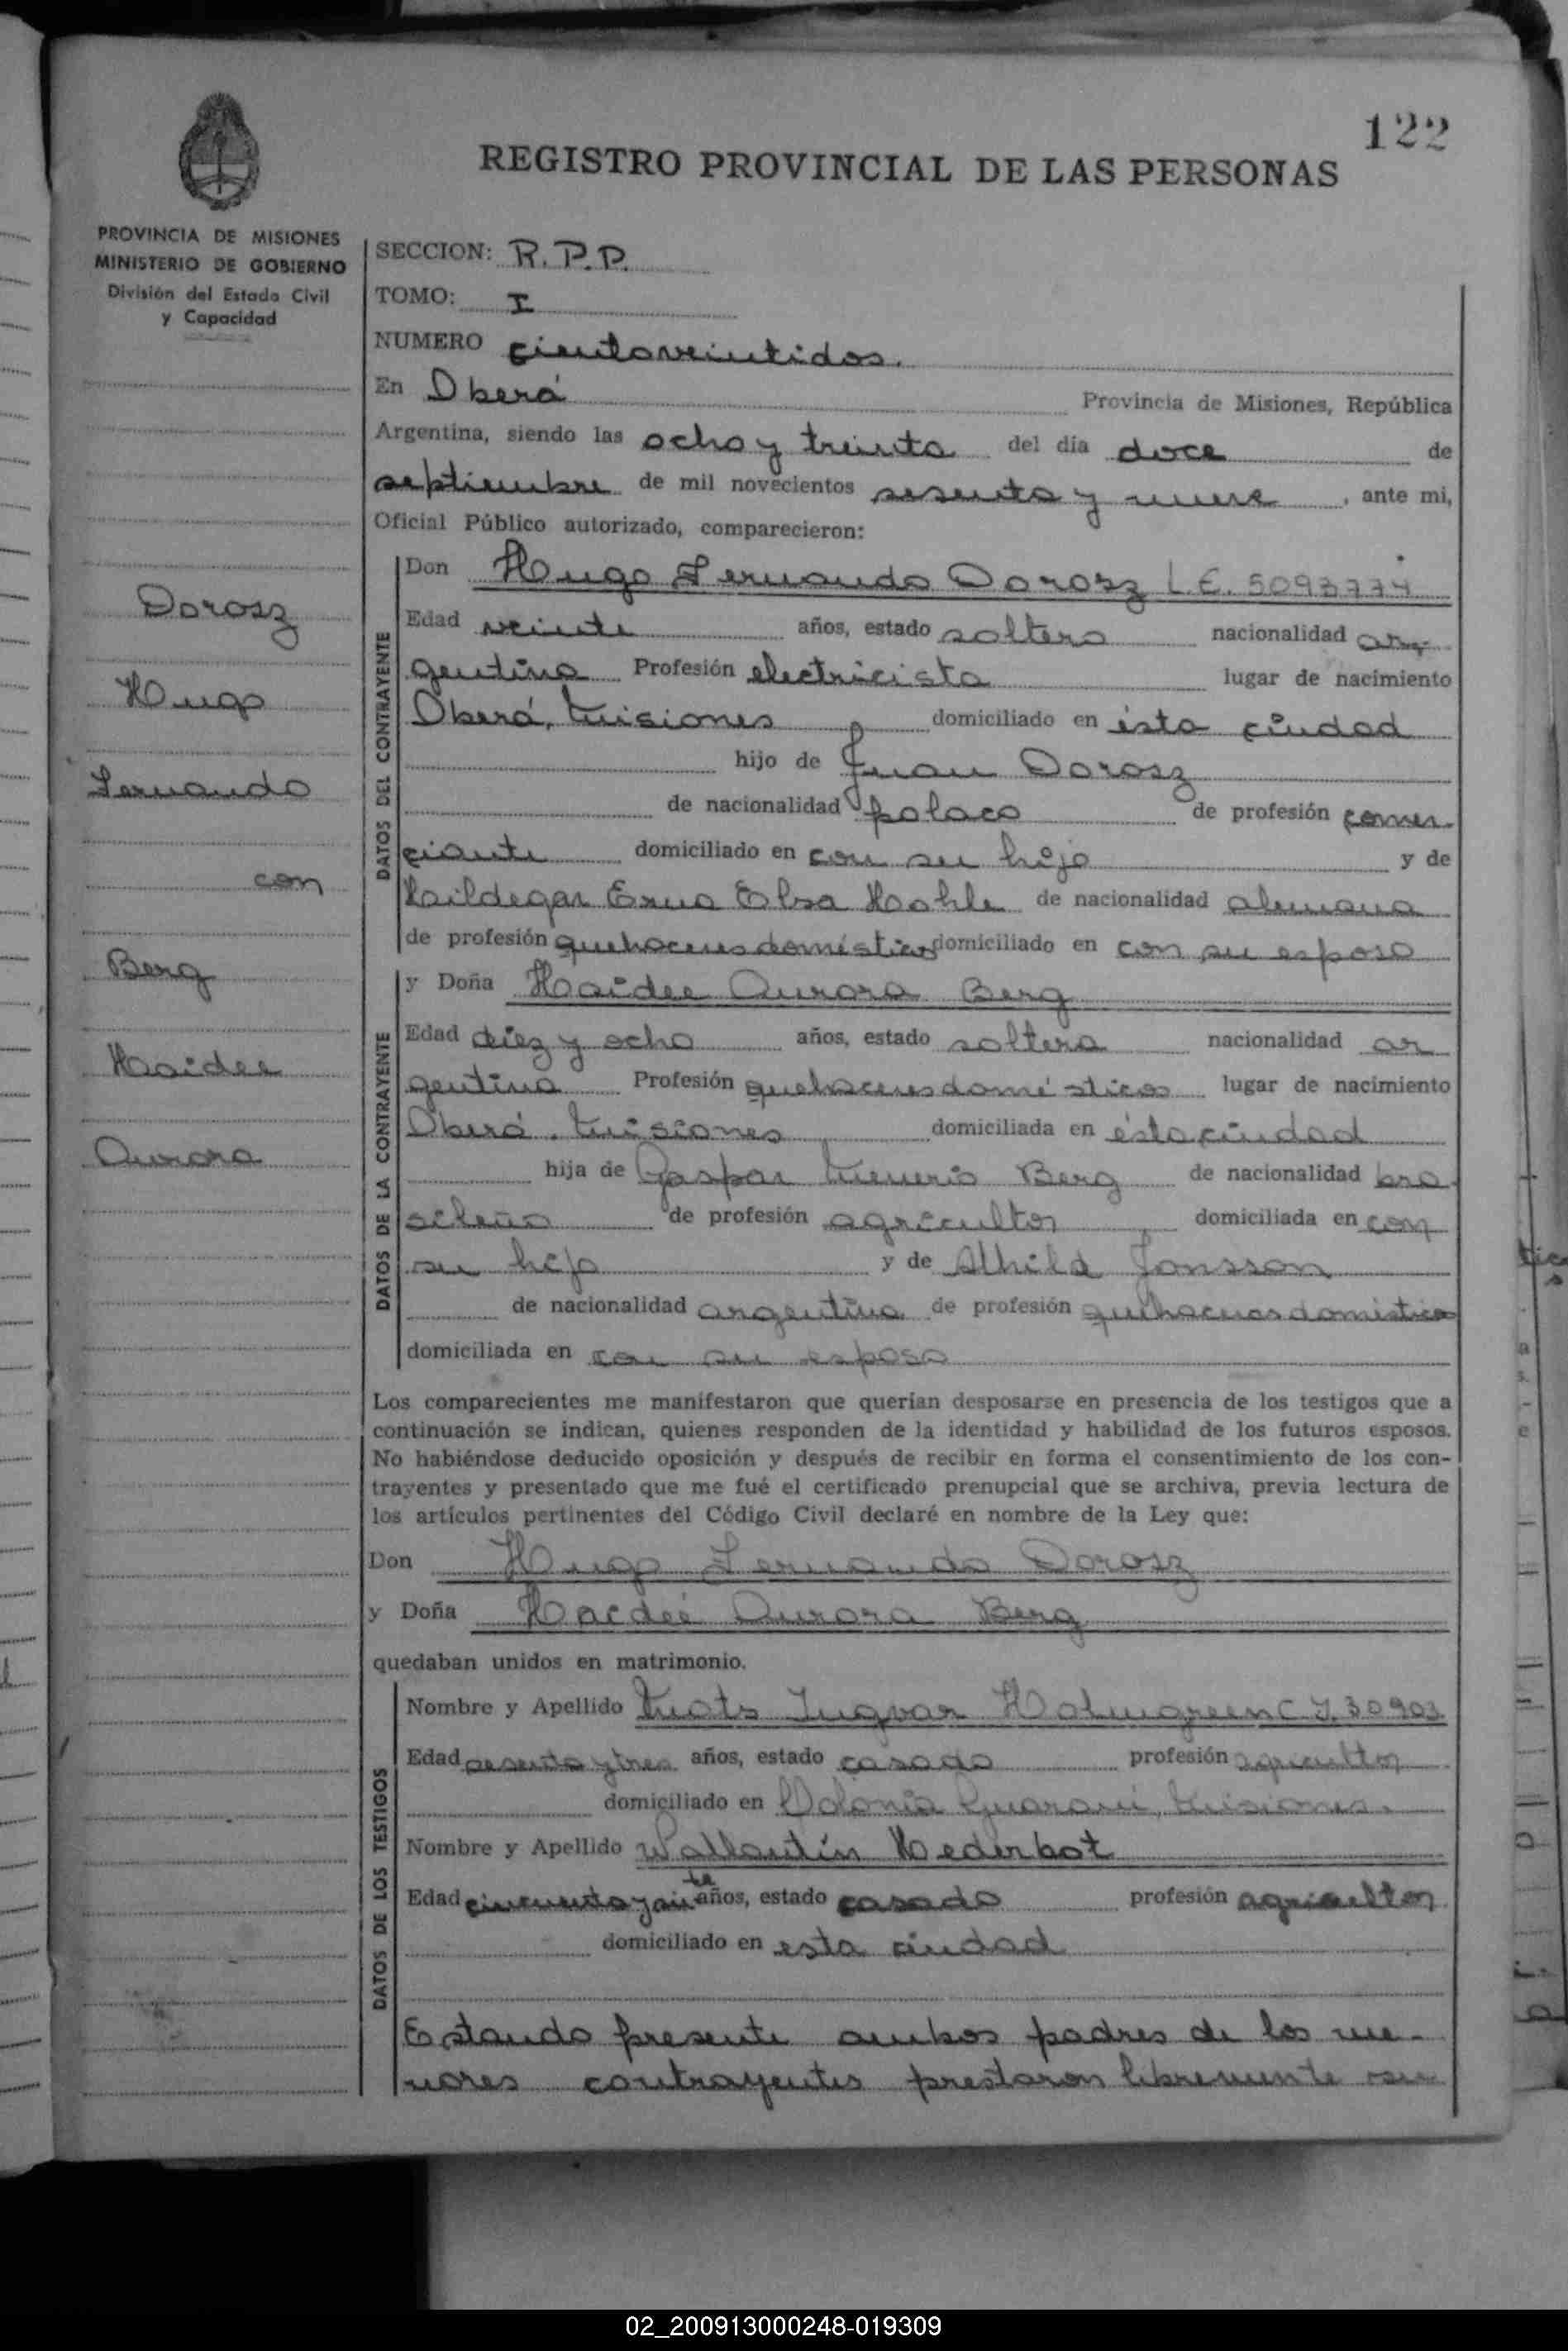 122
REGISTRO PROVINCIAL DE LAS PERSONAS
PROVINCIA DE MISIONES
MINISTERIO DE GOBIERNO
División del Estado Civil
y Capacidad
Dorosz
Hugo
Fernando
con
Berg
Haidee
Aurora
SECCION: R.P.P.
TOMO: I
NUMERO cientoveintidos.
En Oberá Provincia de Misiones, República
Argentina, siendo las ocho y treinta del día doce de
septiembre de mil novecientos sesenta y nueve, ante mi,
Oficial Público autorizado, comparecieron:
DATOS DEL CONTRAYENTE
Don Hugo Fernando Dorosz L.E. 5093774
Edad veinte años, estado soltero nacionalidad ar-
gentina Profesión electricista lugar de nacimiento
Oberá, Misiones domiciliado en ésta ciudad
hijo de Juan Dorosz
de nacionalidad polaco de profesión comer-
ciante domiciliado en con su hijo y de
Haildegar Erna Elsa Hohle de nacionalidad alemana
de profesión quehaceres domésticos domiciliado en con su esposo
DATOS DE LA CONTRAYENTE
y Doña Haidee Aurora Berg
Edad diez y ocho años, estado soltera nacionalidad ar
gentina Profesión quehaceres domésticos lugar de nacimiento
Oberá, Misiones domiciliada en ésta ciudad
hija de Gaspar Berg de nacionalidad bra-
sileño de profesión agricultor domiciliada en con
su hija y de Athila Jonsson
de nacionalidad argentina de profesión quehaceres domésticos
domiciliada en con su esposo
Los comparecientes me manifestaron que querían desposarse en presencia de los testigos que a
continuación se indican, quienes responden de la identidad y habilidad de los futuros esposos.
No habiéndose deducido oposición y después de recibir en forma el consentimiento de los con-
trayentes y presentado que me fué el certificado prenupcial que se archiva, previa lectura de
los artículos pertinentes del Código Civil declaré en nombre de la Ley que:
Don Hugo Fernando Dorosz
y Doña Haideé Aurora Berg
quedaban unidos en matrimonio.
DATOS DE LOS TESTIGOS
Nombre y Apellido Mats Ingvar Holmgreen C.I. 30903
Edad sesenta y tres años, estado casado profesión agricultor
domiciliado en Colonia Guaraní, Misiones.
Nombre y Apellido Wallantín Hederbot
Edad cincuenta y siete años, estado casado profesión agricultor
domiciliado en esta ciudad
Estando presente ambos padres de los me-
nores contrayentes prestaron libremente su
02_200913000248-019309